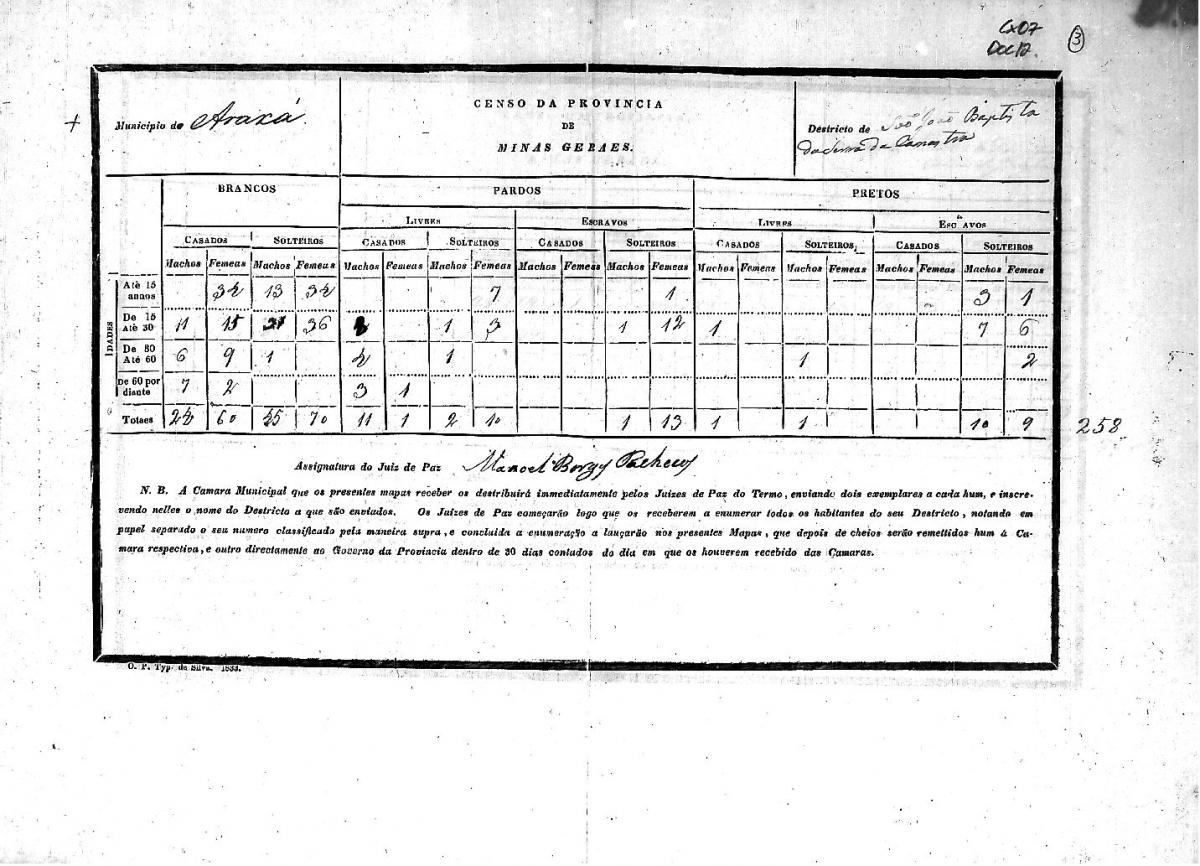 Cx07
Doc12. 3
Municipio de Araxá
CENSO DA PROVINCIA
DE
MINAS GERAES.
Destricto de São João Baptista
da Serra da Canastra
BRANCOS PARDOS PRETOS
LIVRES ESCRAVOS LIVRES ESC AVOS
CASADOS SOLTEIROS CASADOS SOLTEIROS CASADOS SOLTEIROS CASADOS SOLTEIROS, CASADOS SOLTEIROS
Machos Femeas Machos Femeas Machos Femeas Machos Femeas Machos Femeas Machos Femeas Machos Femeas Machos Femeas Machos Femeas Machos Femeas
IDADES
Atè 15 annos 34 13 34 7 1 3 1
De 15 Atè 30 11 15 36 1 3 1 12 1 7 6
De 30 Até 60 6 9 1 2 1 1 2
De 60 por diante 7 2 3 1
Totaes 24 60 70 11 1 2 10 1 13 1 1 10 9 258
Assignatura do Juiz de Paz Manoel Borges Pacheco
N. B. A Camara Municipal que os presentes mapas receber os destribuirá immediatamente pelos Juizes de Paz do Termo, enviando dois exemplares a cada hum, e inscre-
vendo nelles o nome do Destricto a que são enviados. Os Juizes de Paz começarão logo que os receberem a enumerar todos os habitantes do seu Destricto, notando em
papel separado o seu numero classificado pela maneira supra, e concluida a enumeração a lançarão nos presentes Mapas, que depois de cheios serão remettidos hum á Ca-
mara respectiva, e outro directamente ao Governo da Provincia dentro de 30 dias contados do dia em que os houverem recebido das Camaras.
O. P. Typ. de Silva. 1833.